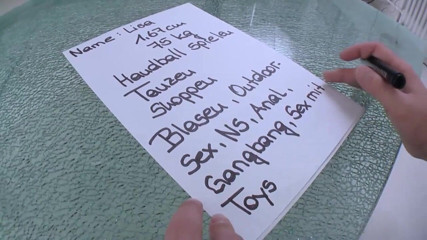 Name: Lisa
1.67cm
75 kg
Handball spielen
Tanzen
Shoppen
Blasen, Outdoor-
Sex, NS, Anal,
Gangbang, Sex mit
Toys